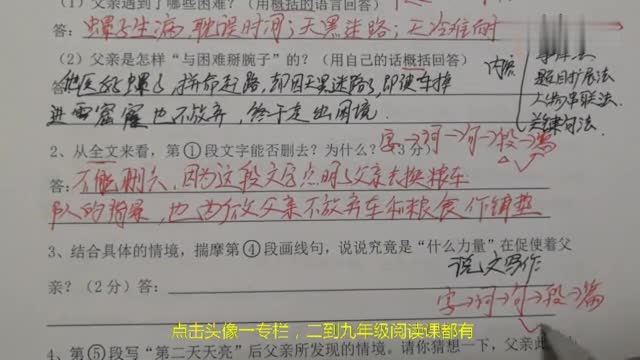 (1) 父亲遇到了哪些困难？（用概括的语言回答）
答：骡子生病，耽误时间；天黑迷路；天冷难耐
(2) 父亲是怎样“与困难掰腕子”的？（用自己的话概括回答）
答：他医好骡子，拼命赶路，却因天黑迷路，即使车掉
进雪窟窿也不放弃，终于走出困境.
内容
题目扩展法
人物串联法.
关键句法.
字→词→句→段→篇
2、从全文来看，第①段文字能否删去？为什么？（3分）
答：不能删去，因为这段文字点明了父亲去换粮车
队的背景，也为下文父亲不放弃车和粮食作铺垫
3、结合具体的情境，揣摩第④段画线句，说说究竟是“什么力量”在促使着父
亲？（2分）答：
说文写作
字→词→句→段→篇
点击头像一专栏，二到九年级阅读课都有
4、第⑤段写“第二天天亮”后父亲所发现的情景。请你猜想一下，父亲此